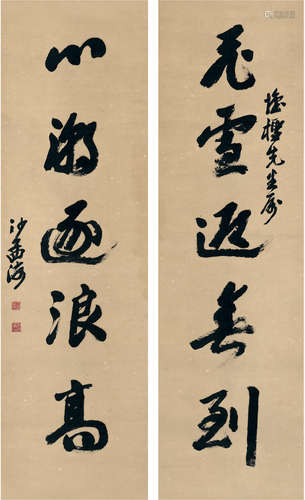 飛雪迎春到
先生属
心潮逐浪高
沙孟海